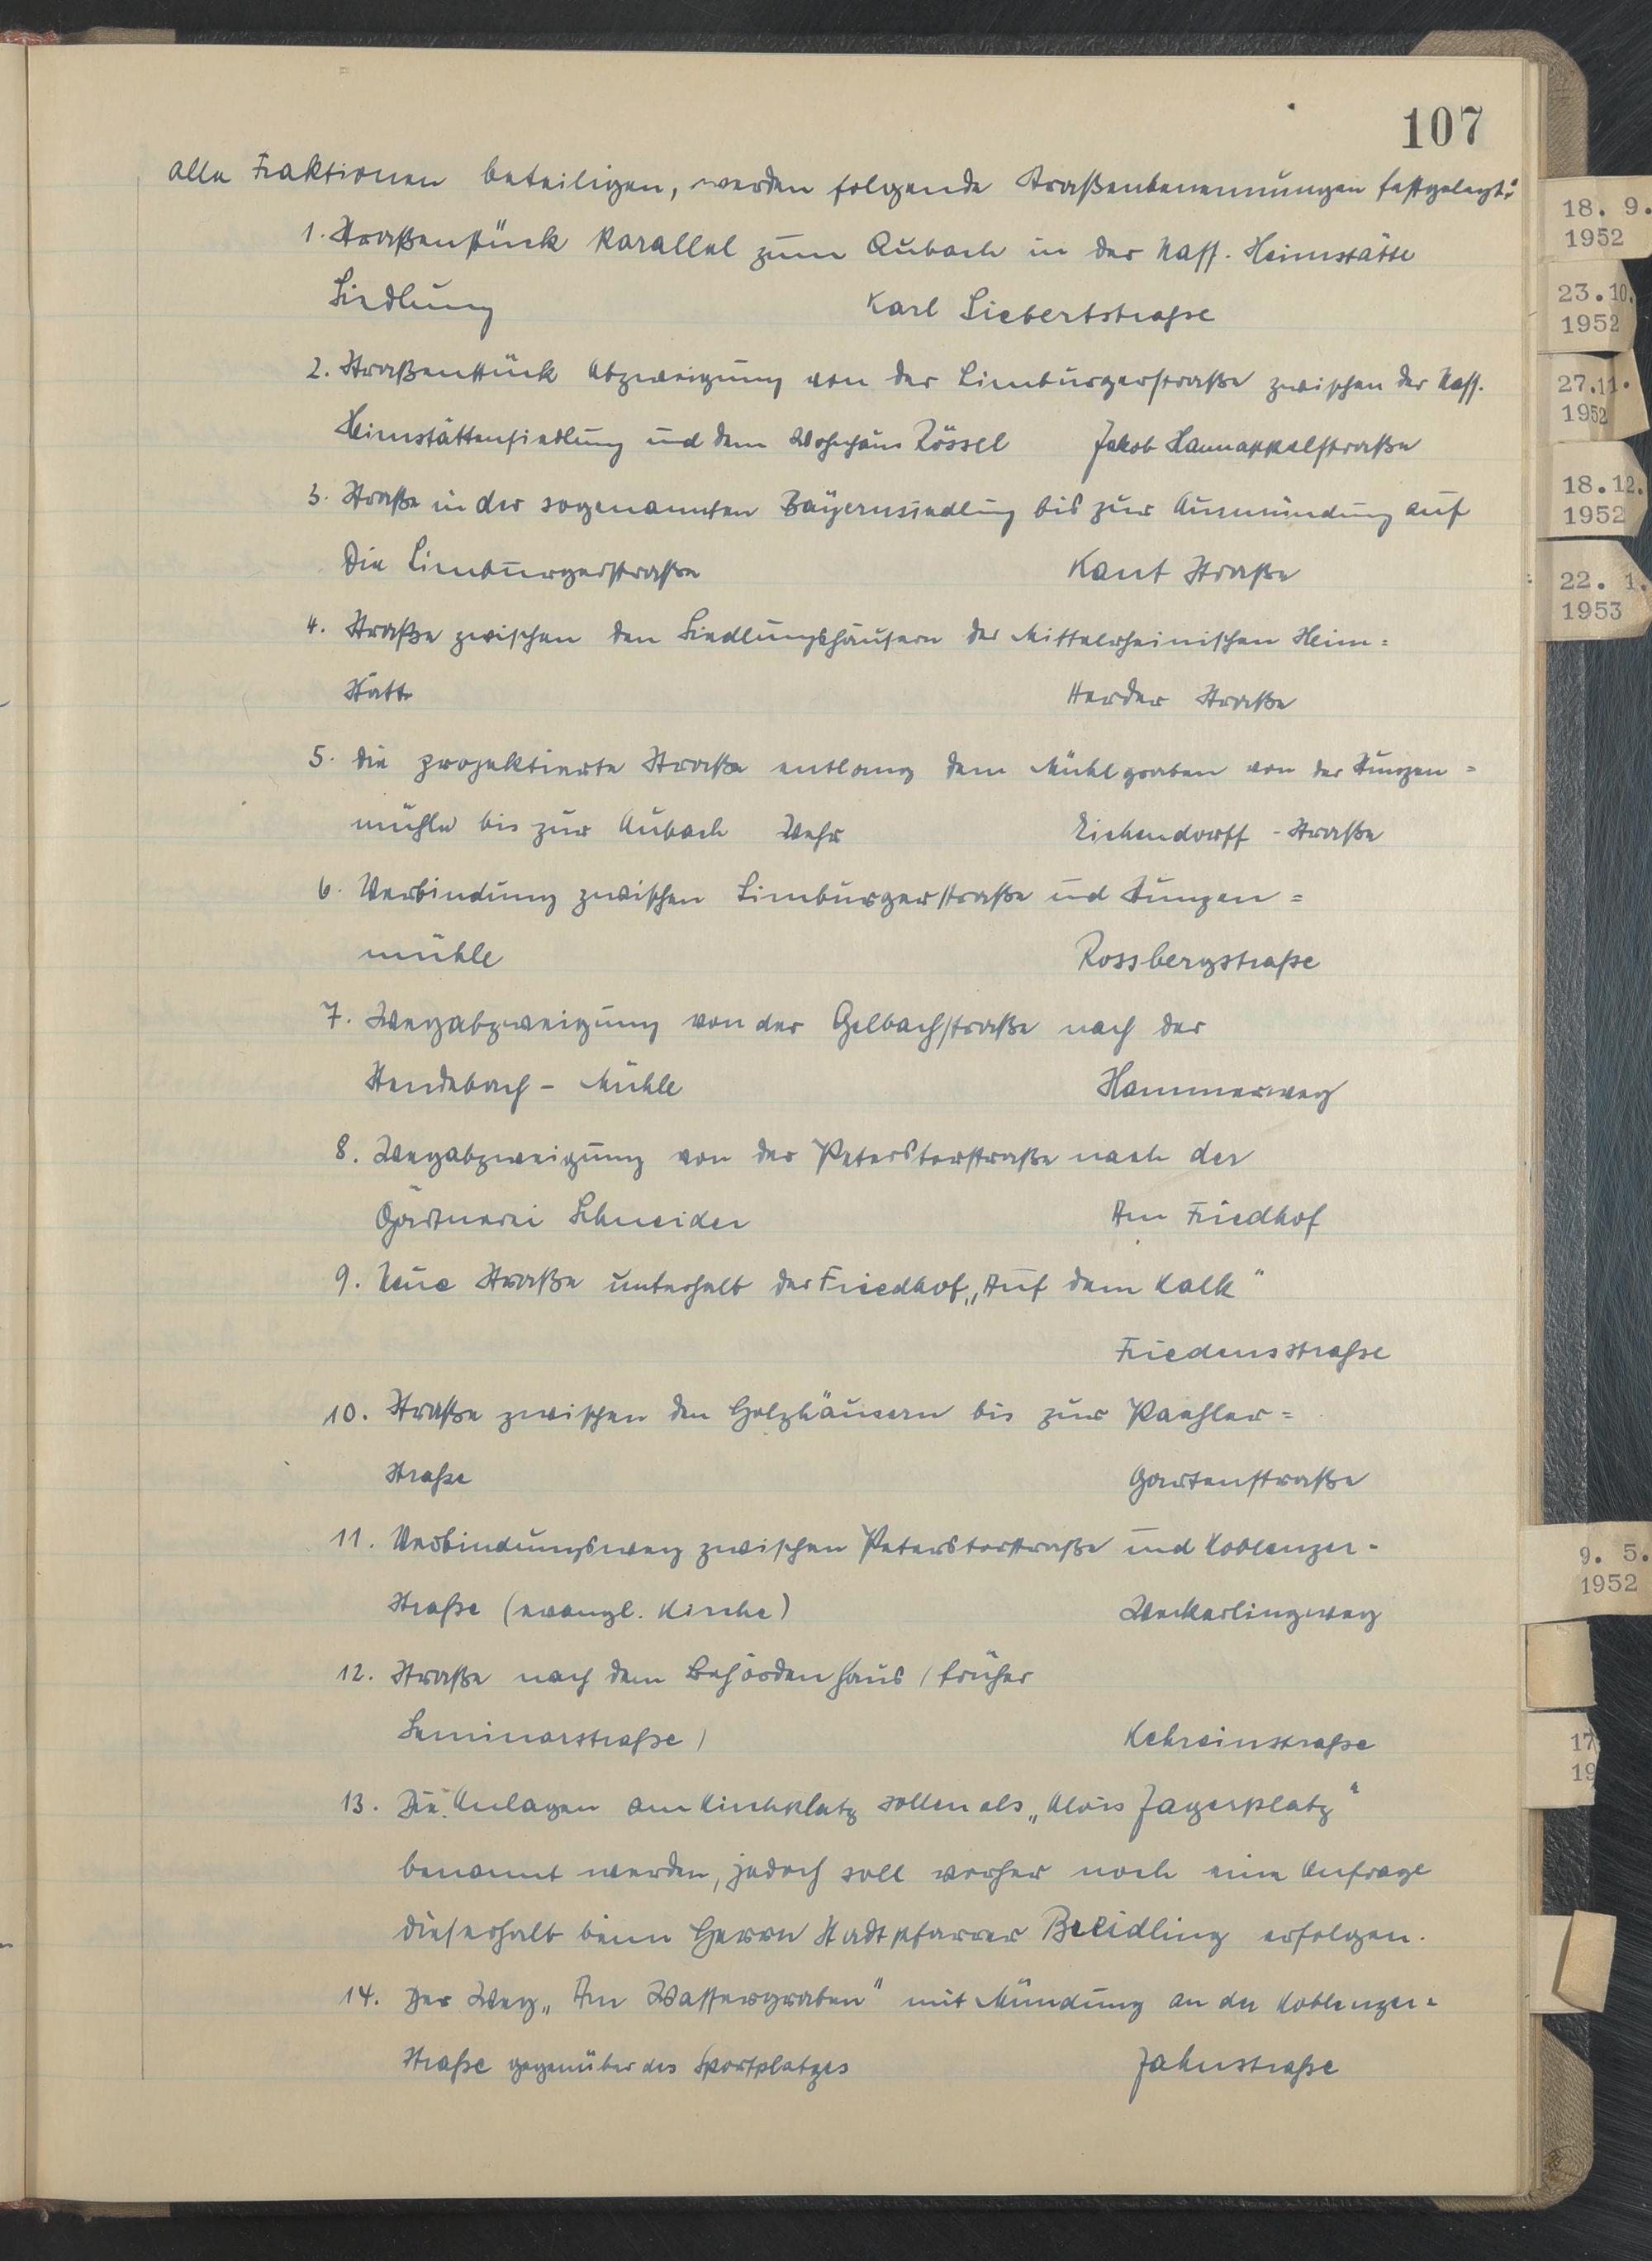 107
alle Fraktionen beteiligen, werden folgende Straßenbenennungen festgelegt:
1. Straßenstück Parallel zum Aubach in der Nass. Heimstätte
Siedlung Karl Siebertstraße
2. Straßenstück Abzweigung von der Limburgerstraße zwischen der Nass.
Heimstättensiedlung und dem Wohnhaus Rössel Jakob Hannappelstraße
3. Straße in der sogenannten Bayernsiedlung bis zur Ausmündung auf
die Limburgerstraße Kant Straße
4. Straße zwischen den Siedlungshäusern der Mittelrheinischen Heim=
stätte Herder Straße
5. die projektierte Straße entlang dem Mühlgraben von der
mühle bis zur Aubach Wehr Eichendorff - Straße
6. Verbindung zwischen Limburgerstraße und
mühle Rossbergstraße
7. Wegabzweigung von der Gelbachstraße nach der
- Mühle Hammerweg
8. Wegabzweigung von der Peterstorstraße nach der
Gärtnerei Schneider Am Friedhof
9. Neue Straße unterhalb der Friedhof „Auf dem Kalk"
Friedensstraße
10. Straße zwischen den Holzhäusern bis zur
Straße Gartenstraße
11. Verbindungsweg zwischen Peterstorstraße und Koblenzer-
Straße (evangl. Kirche) Weckerlingweg
12. Straße nach dem Behördenhaus / früher
Seminarstraße / Kehreinstraße
13. Die Anlagen am Kirchplatz sollen als „Alois Jägerplatz"
benannt werden, jedoch soll vorher noch eine Anfrage
dieserhalb beim Herrn Stadtpfarrer Breidling erfolgen.
14. Der Weg „Am Wassergraben" mit Mündung an der Koblenzer=
Straße gegenüber des Sportplatzes Jahnstraße
18. 9.
1952
23.10.
1952
27.11.
1952
18.12.
1952
22. 1.
1953
9. 5.
1952
17
19